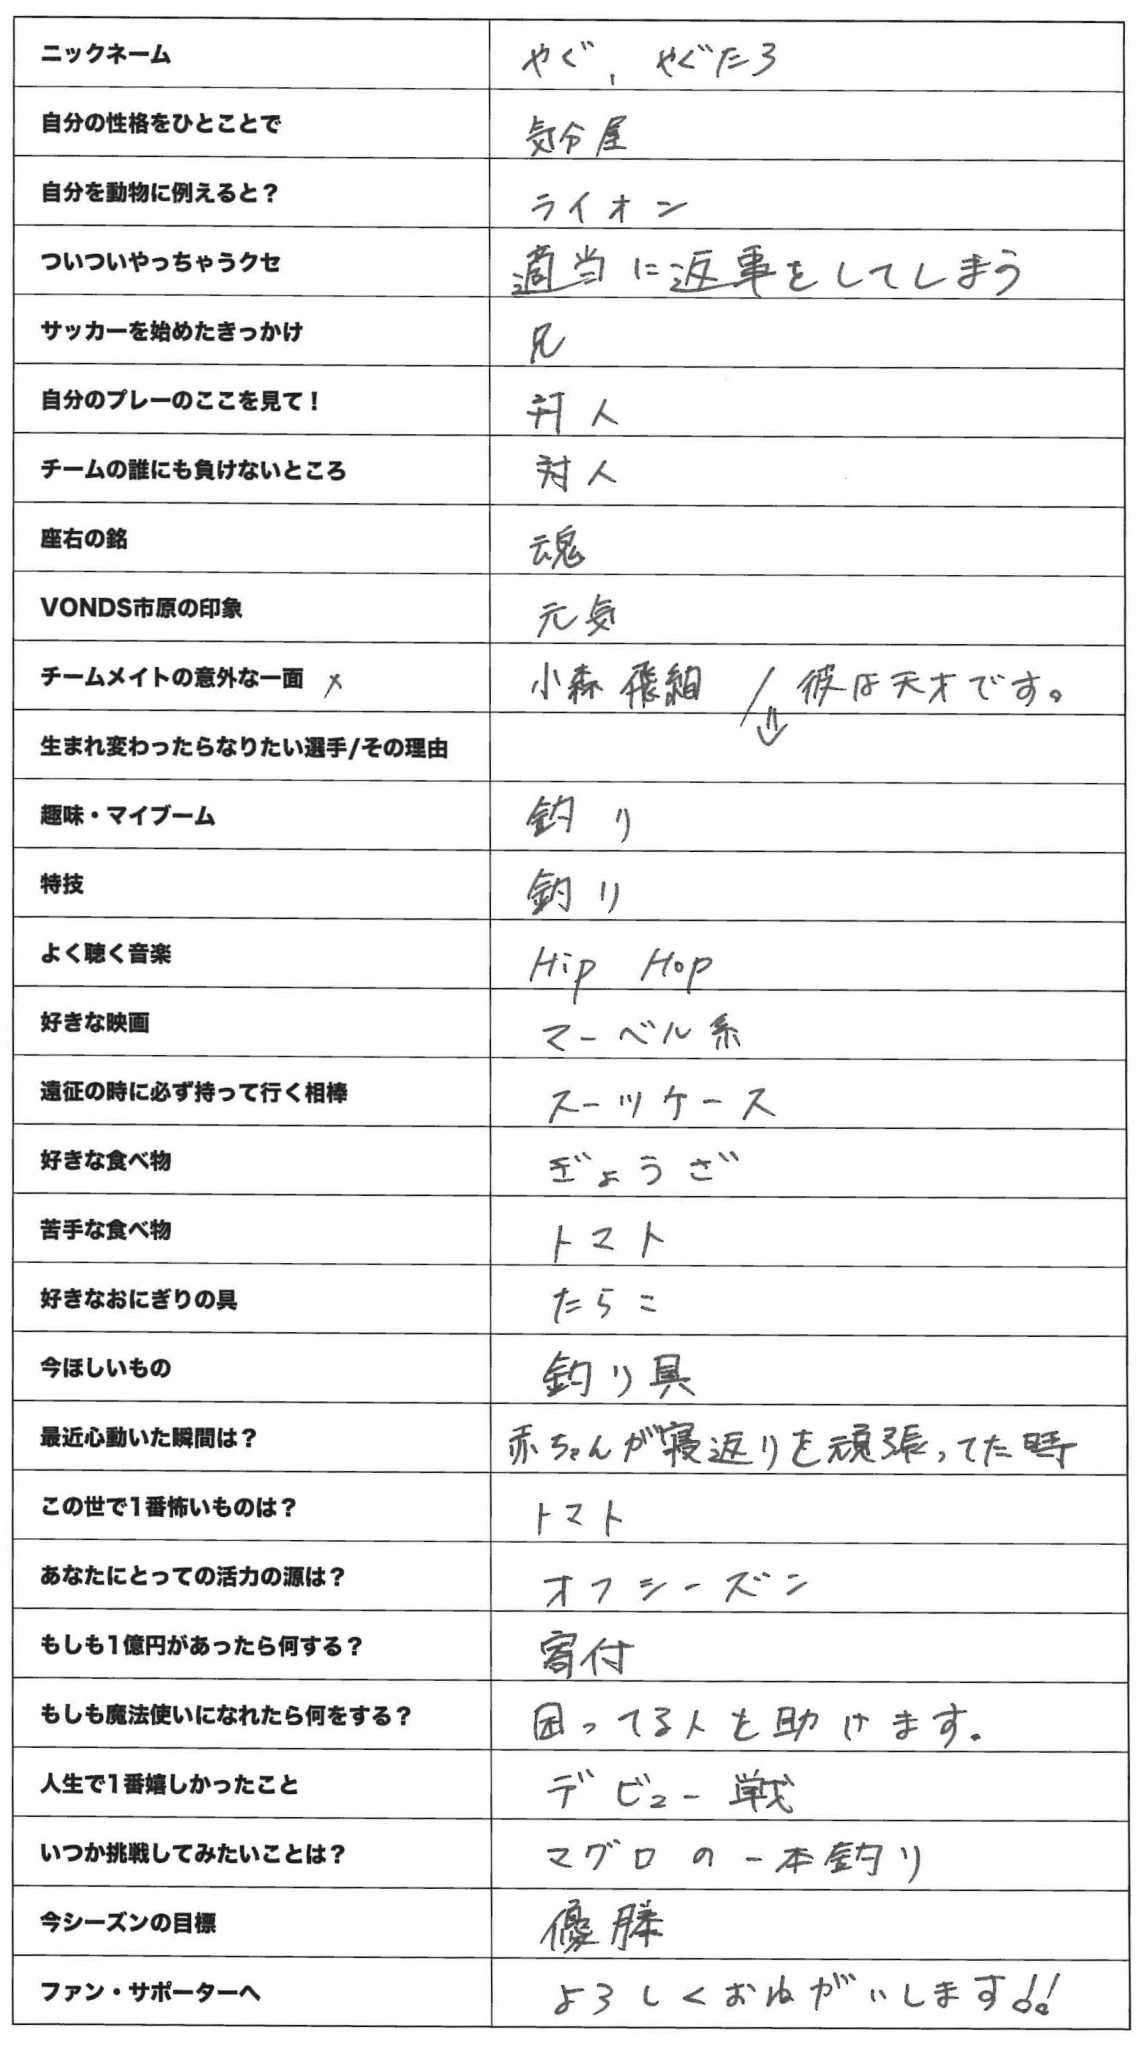 ニックネーム やぐ, やぐたろ
自分の性格をひとことで 気分屋
自分を動物に例えると? ライオン
ついついやっちゃうクセ 適当に返事をしてしまう
サッカーを始めたきっかけ 兄
自分のプレーのここを見て! 対人
チームの誰にも負けないところ 対人
座右の銘 魂
VONDS市原の印象 元気
チームメイトの意外な一面 × 小森飛絢 / 彼は天才です。
⇓
生まれ変わったらなりたい選手/その理由
趣味・マイブーム 釣り
特技 釣り
よく聴く音楽 Hip Hop
好きな映画 マーベル系
遠征の時に必ず持って行く相棒 スーツケース
好きな食べ物 ぎょうざ
苦手な食べ物 トマト
好きなおにぎりの具 たらこ
今ほしいもの 釣り具
最近心動いた瞬間は? 赤ちゃんが寝返りを頑張ってた時
この世で1番怖いものは? トマト
あなたにとっての活力の源は? オフシーズン
もしも1億円があったら何する? 寄付
もしも魔法使いになれたら何をする? 困ってる人を助けます。
人生で1番嬉しかったこと デビュー戦
いつか挑戦してみたいことは? マグロの一本釣り
今シーズンの目標 優勝
ファン・サポーターへ よろしくおねがいします!!